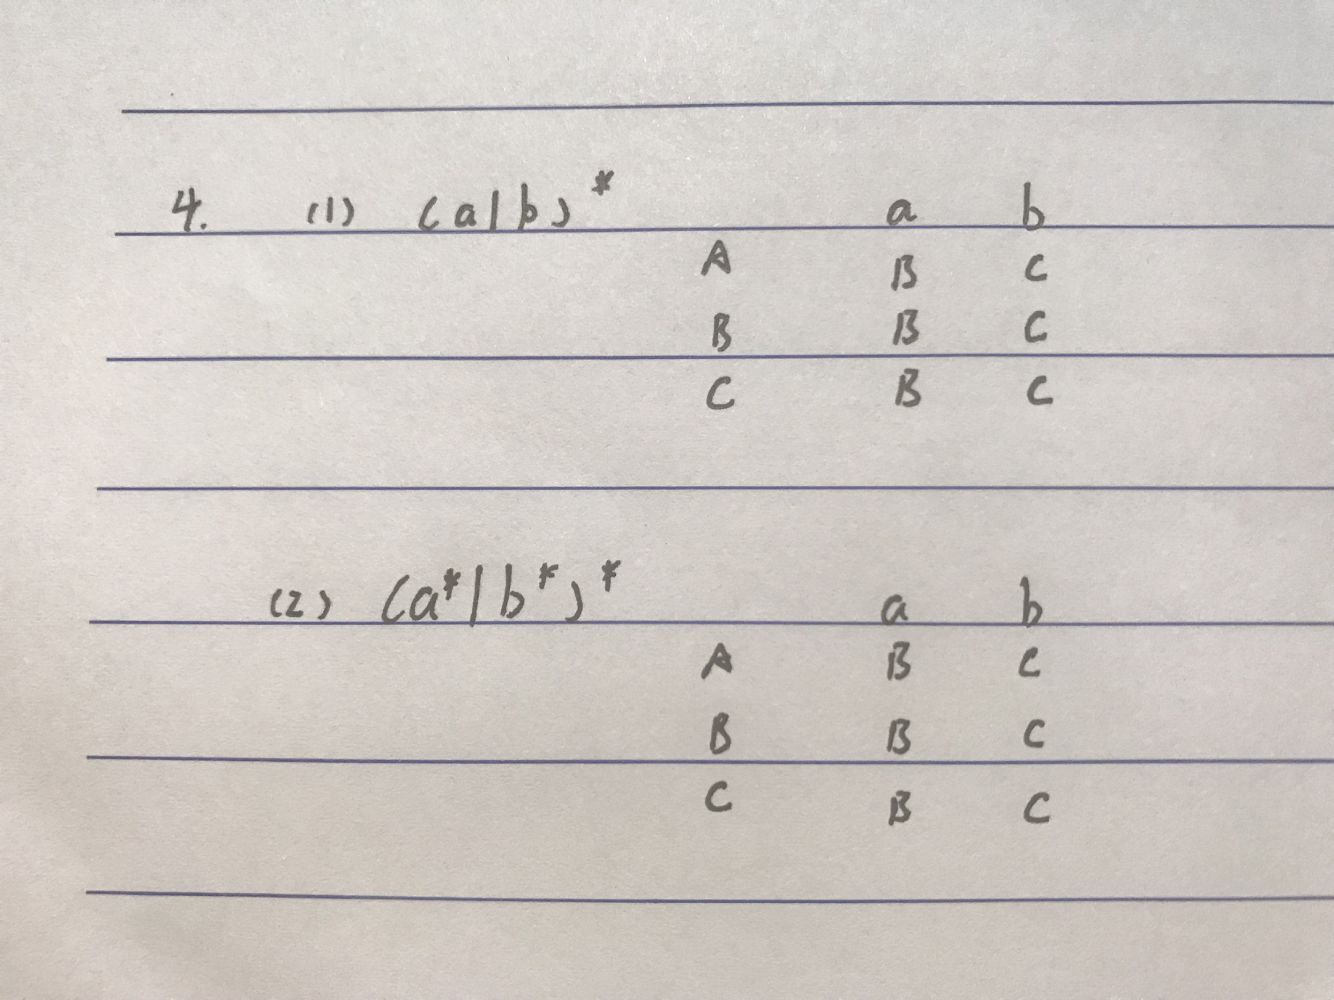 4. (1) (a|b)* a b
A B C
B B C
C B C
(2) (a*|b*)* a b
A B C
B B C
C B C